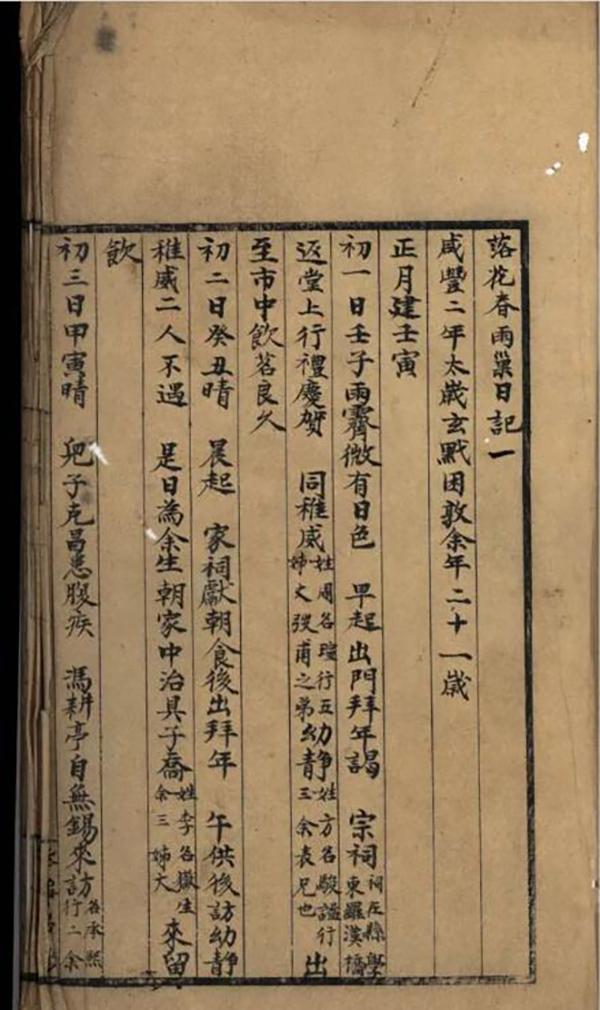 落花春雨巢日記一
咸豐二年太歲玄黓困敦余年二十一歲
正月建壬寅
初一日壬子雨霽微有日色 早起出門拜年謁 宗祠祠在縣學東羅漢橋
返堂上行禮慶賀 同稚威姓周名行五姊丈弢甫之弟幼静姓方名駿謨行三余表兄也出
至市中飲茗良久
初二日癸丑晴 晨起 家祠獻朝食後出拜年 午供後訪幼静
稚威二人不遇 是日為余生朝家中治具子喬姓李名嶽生余三姊丈來留
飲
初三日甲寅晴 兒子克昌患腹疾 馮耕亭自無錫來訪名承熙行二余